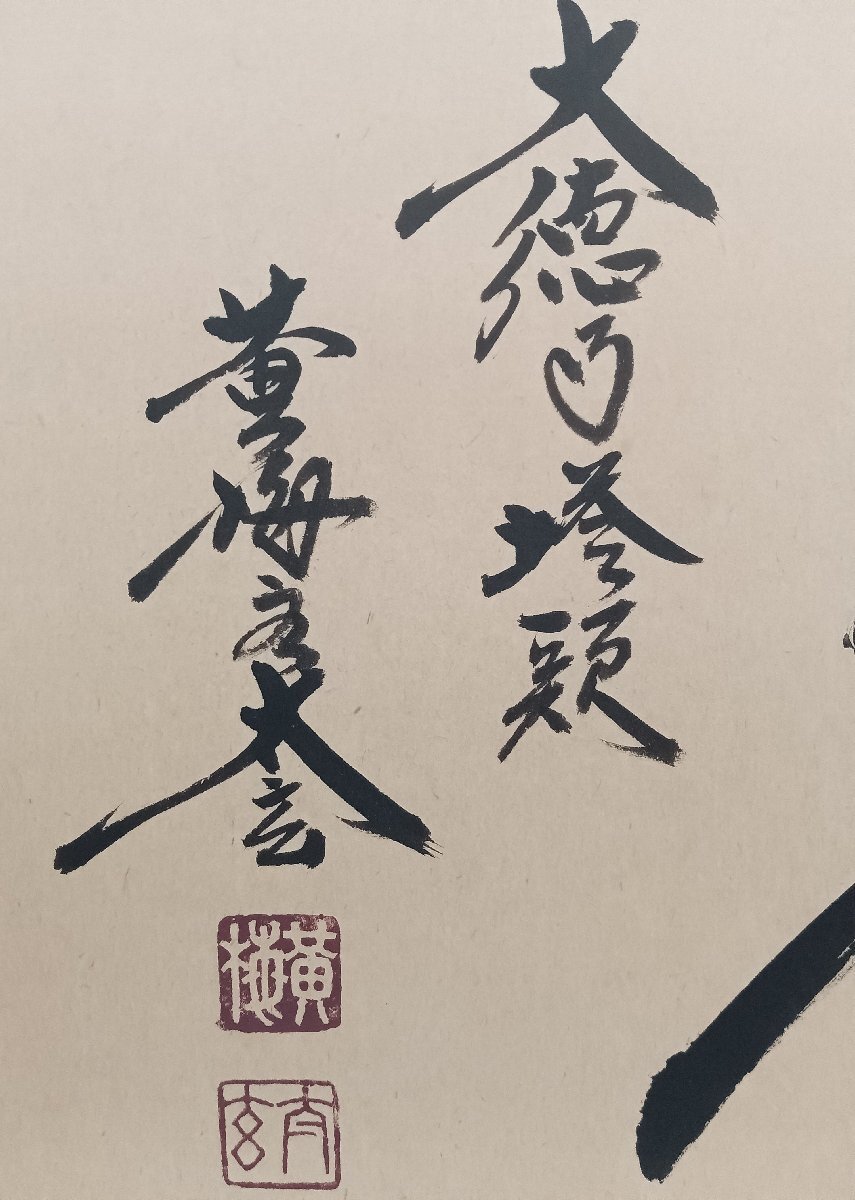 大徳寺塔頭
黄梅 太玄
黄梅
太玄